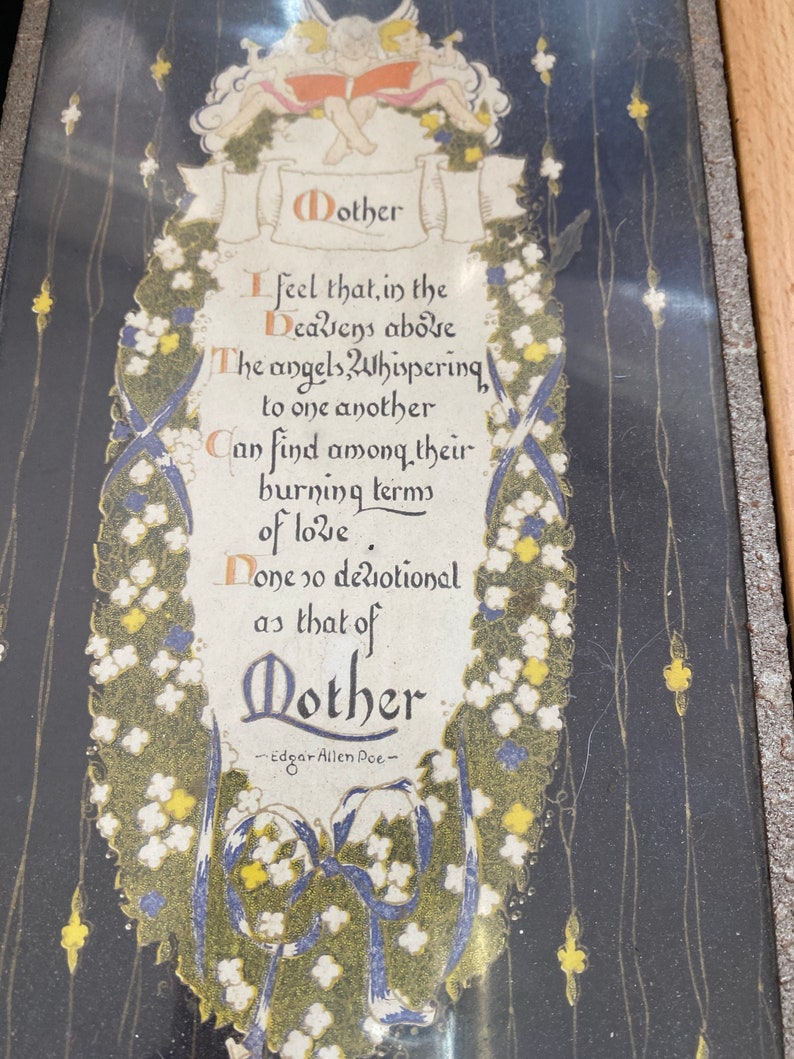 Mother
I feel that, in the
Heavens above
The angels, Whispering
to one another
Can find among their
burning terms
of love
None so devotional
as that of
Mother
-Edgar Allen Poe-